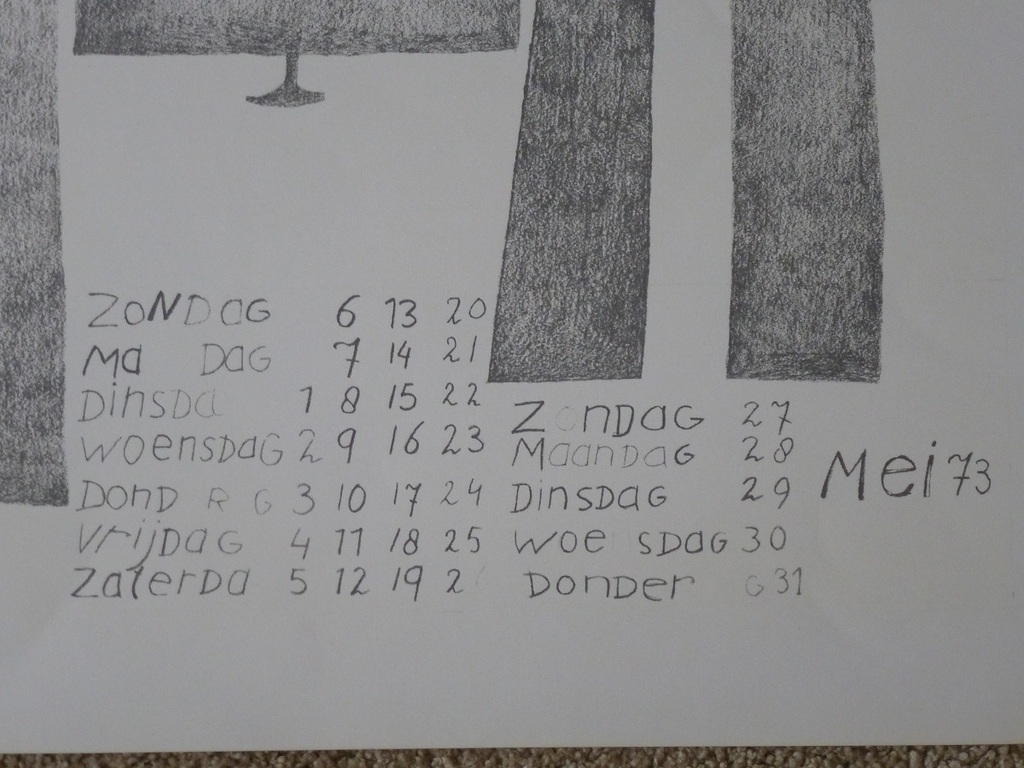 ZONDAG 6 13 20
MA DAG 7 14 21
DinSDa 1 8 15 22
WOenSDaG 2 9 16 23
DOnD R G 3 10 17 24
VrijDaG 4 11 18 25
ZaterDa 5 12 19 2
Z nDaG 27
MaanDaG 28
DinSDaG 29
WOe SDaG 30
DOnDer G 31
Mei 73